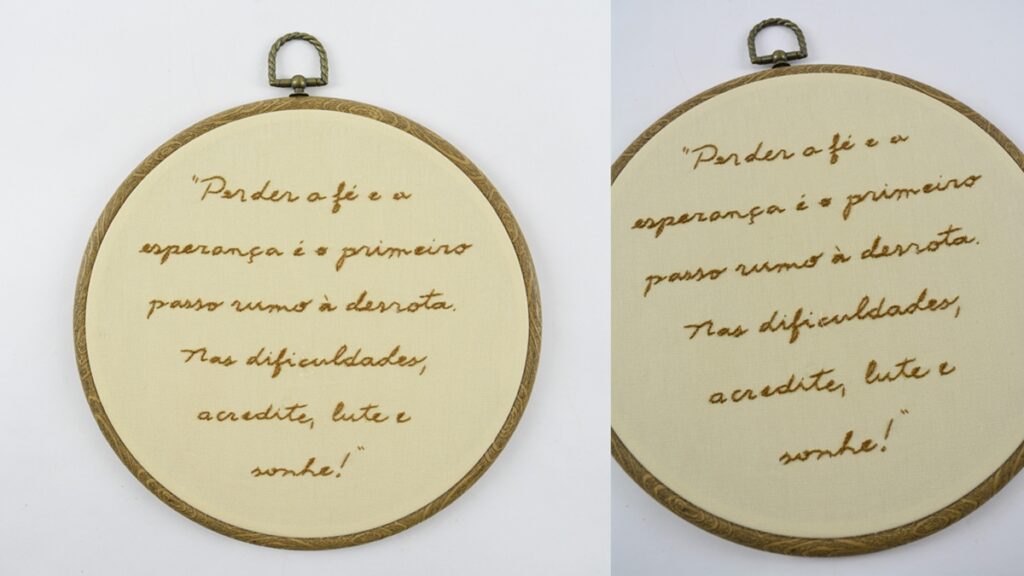 "Perder a fé e a
esperança é o primeiro
passo rumo à derrota.
Nas dificuldades,
acredite, lute e
sonhe!"
"Perder a fé e a
esperança é o primeiro
passo rumo à derrota.
Nas dificuldades,
acredite, lute e
sonhe!"